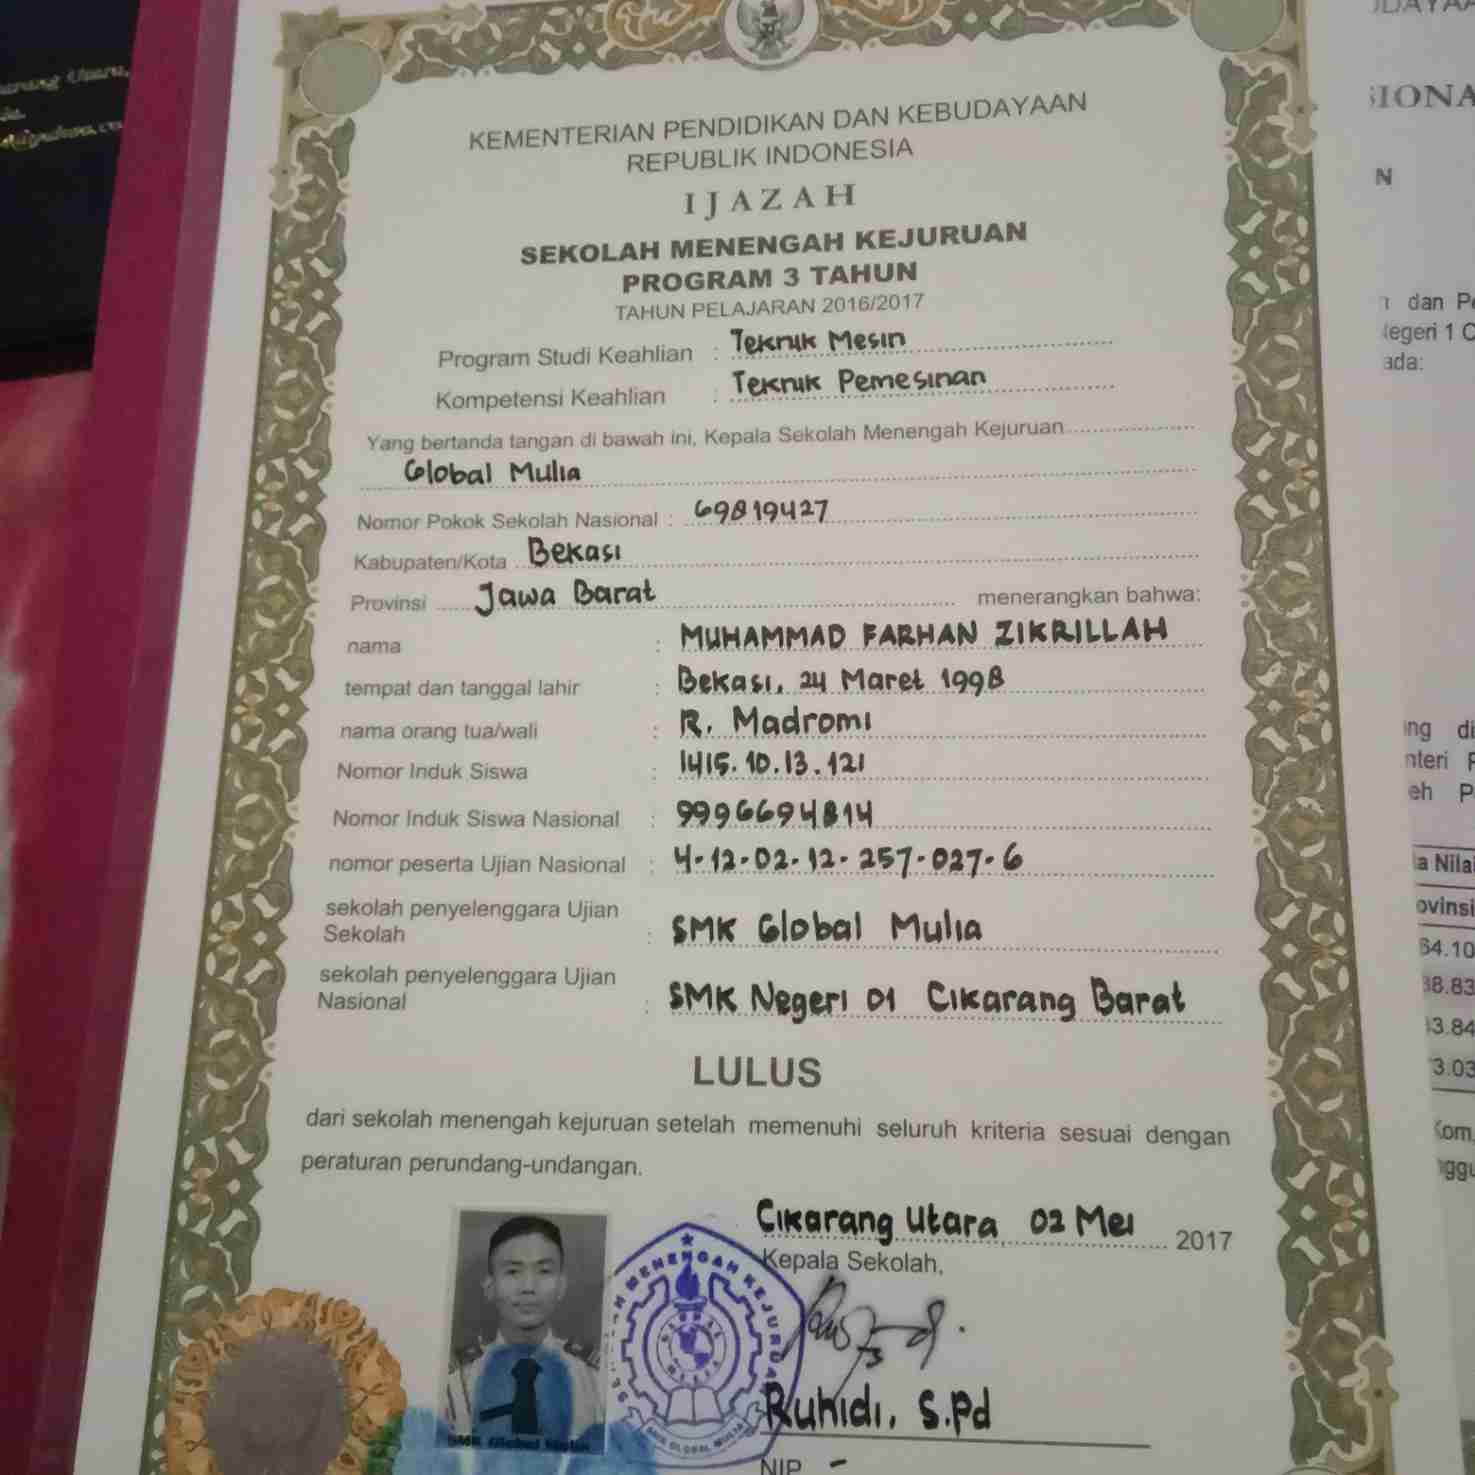 KEMENTERIAN PENDIDIKAN DAN KEBUDAYAAN
REPUBLIK INDONESIA
IJAZAH
SEKOLAH MENENGAH KEJURUAN
PROGRAM 3 TAHUN
TAHUN PELAJARAN 2016/2017
Program Studi Keahlian : Teknik Mesin
Kompetensi Keahlian : Teknik Pemesinan
Yang bertanda tangan di bawah ini, Kepala Sekolah Menengah Kejuruan
Global Mulia
Nomor Pokok Sekolah Nasional : 69819427
Kabupaten/Kota Bekasi
Provinsi Jawa Barat menerangkan bahwa:
nama : MUHAMMAD FARHAN ZIKRILLAH
tempat dan tanggal lahir : Bekasi, 24 Maret 1998
nama orang tua/wali : R. Madromi
Nomor Induk Siswa : 1415.10.13.121
Nomor Induk Siswa Nasional : 9996694814
nomor peserta Ujian Nasional : 4-12-02-12-257-027-6
sekolah penyelenggara Ujian
Sekolah : SMK Global Mulia
sekolah penyelenggara Ujian
Nasional : SMK Negeri 01 Cikarang Barat
LULUS
dari sekolah menengah kejuruan setelah memenuhi seluruh kriteria sesuai dengan
peraturan perundang-undangan.
Cikarang Utara, 02 Mei 2017
Kepala Sekolah,
MENENGAH KEJURUAN
GLOBAL MULIA
SMK GLOBAL MULIA
SMK Global Mulia
Ruhidi, S.Pd
NIP -
N
dan
1
ada:
a Nilai
64.10